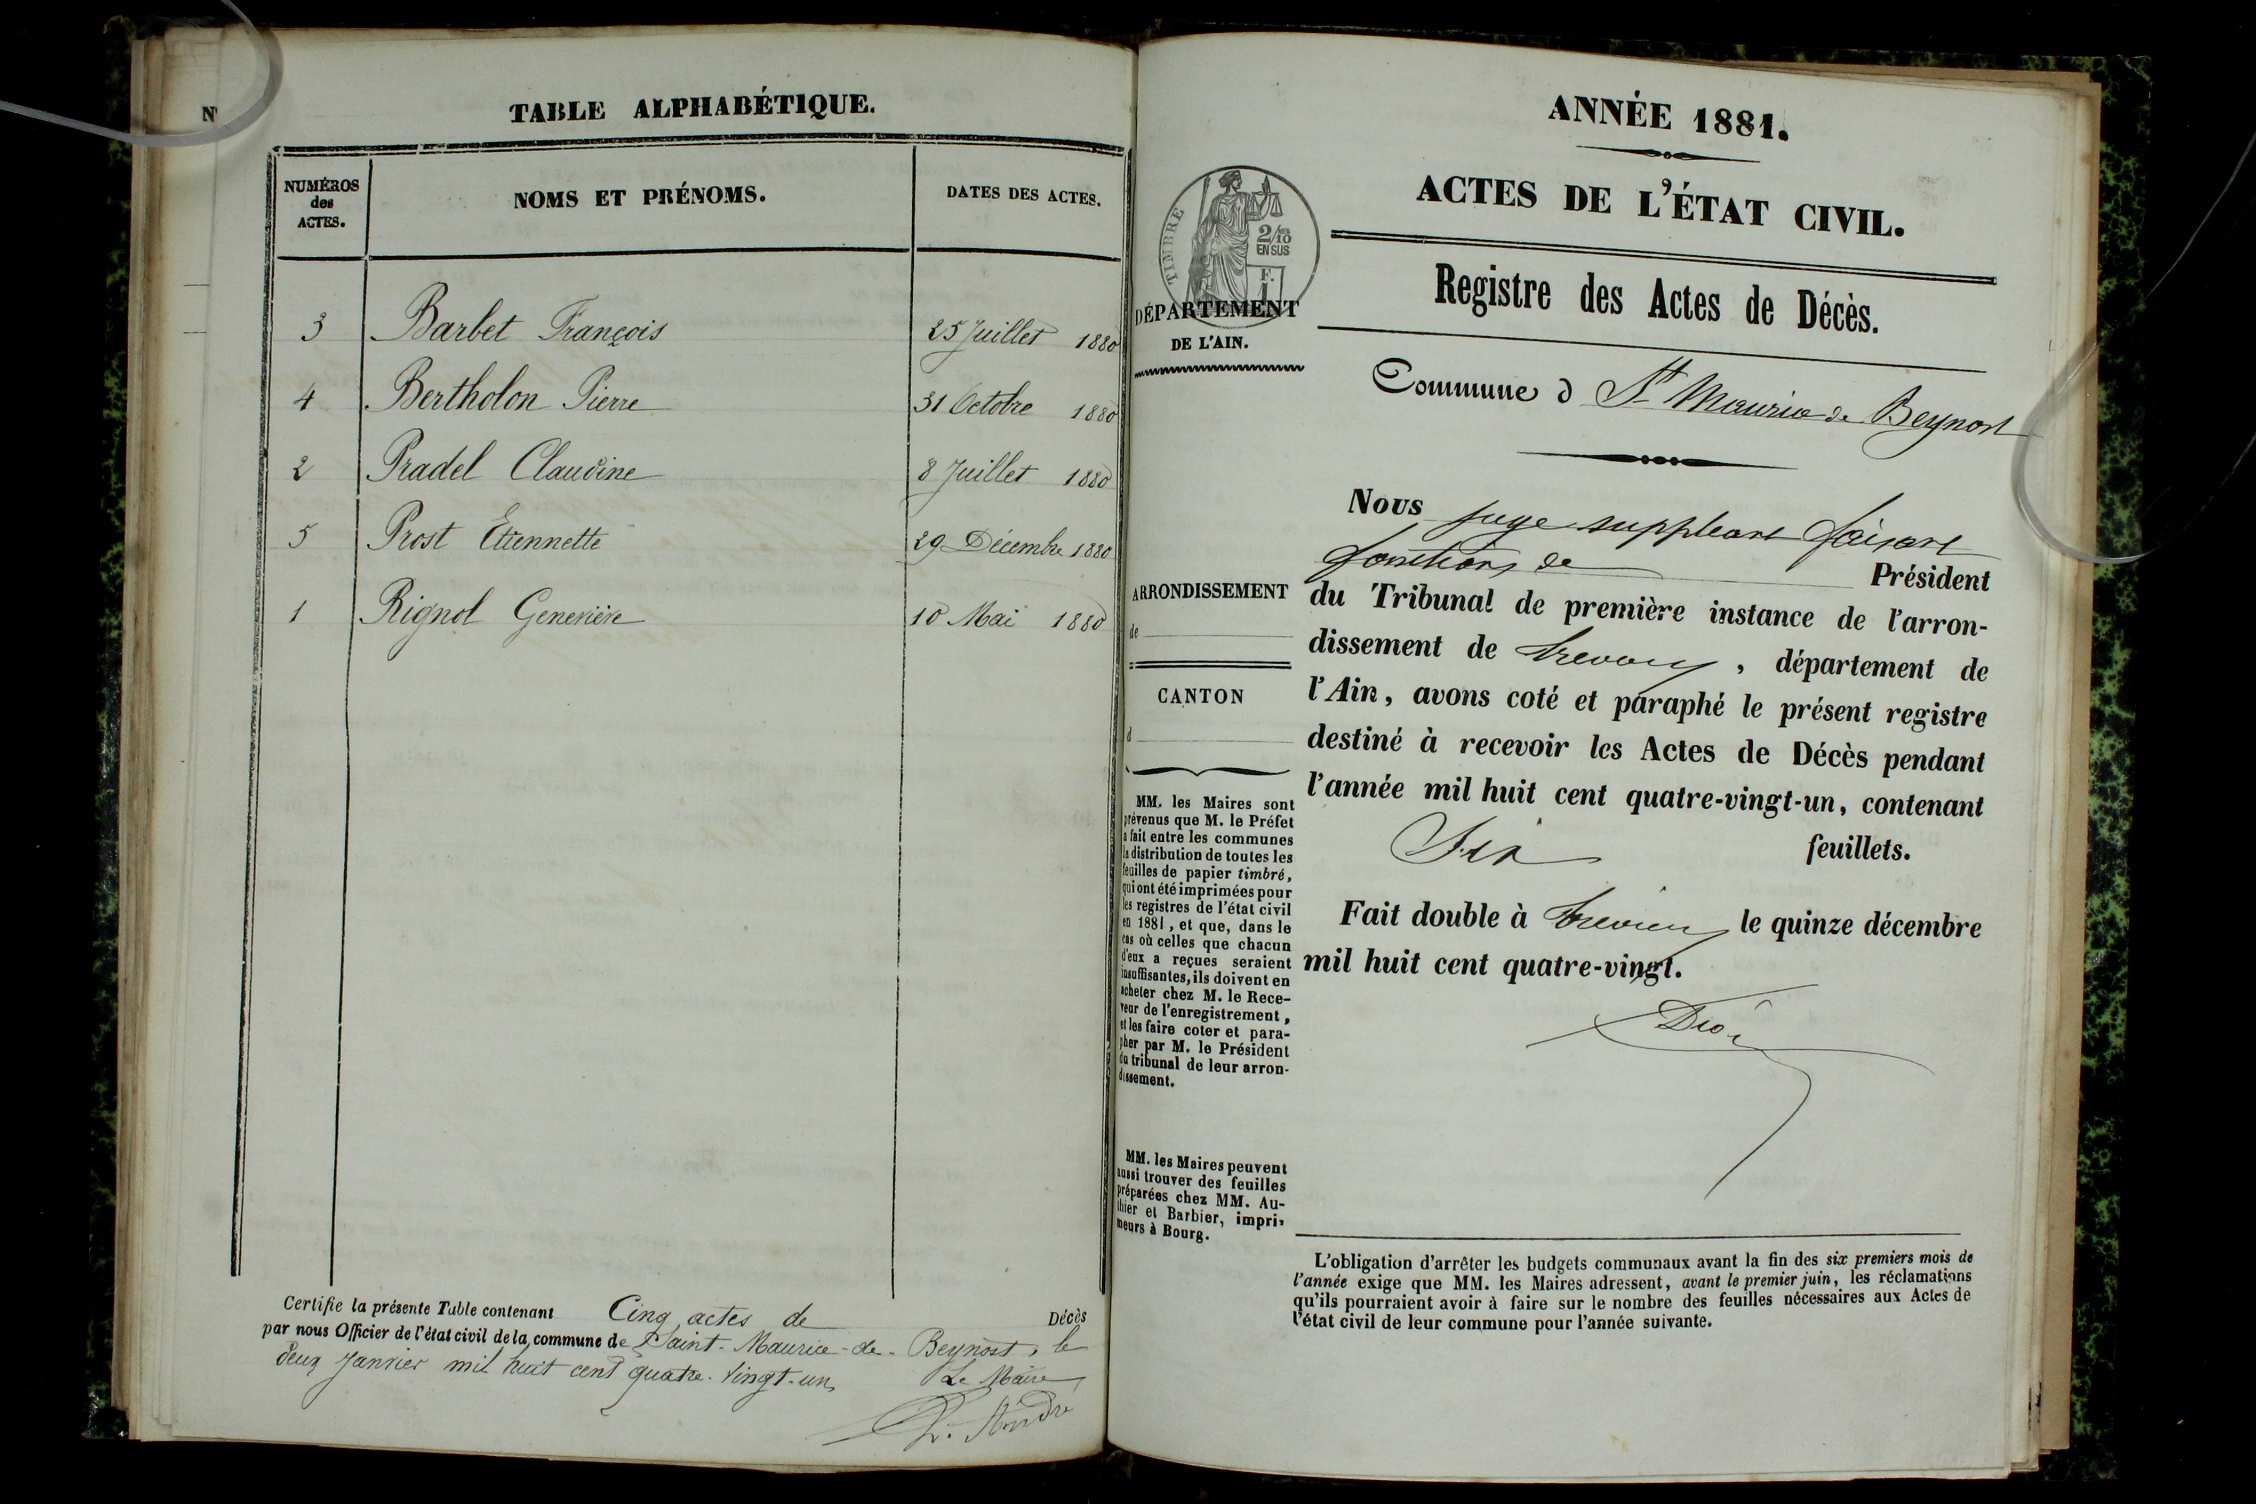 N
TABLE ALPHABÉTIQUE.
NUMÉROS
des
ACTES.
NOMS ET PRÉNOMS.
DATES DES ACTES.
3 Barbet François 25 Juillet 1880
4 Bertholon Pierre 31 Octobre 1880
2 Pradel Claudine 8 Juillet 1880
5 Prost Etiennette 29 Décembre 1880
1 Rignol Geneviève 10 Mai 1880
Certifie la présente Table contenant Cinq actes de Décès
par nous Officier de l'état civil de la commune de Saint-Maurice-de-Beynost, le
deux Janvier mil huit cent quatre-vingt-un
Le Maire
ANNÉE 1881.
ACTES DE L'ÉTAT CIVIL.
TIMBRE
2/10
EN SUS
DÉPARTEMENT
DE L'AIN.
Registre des Actes de Décès.
Commune d St Maurice de Beynost
ARRONDISSEMENT
de
CANTON
d
MM. les Maires sont
prévenus que M. le Préfet
a fait entre les communes
la distribution de toutes les
feuilles de papier timbré,
qui ont été imprimées pour
les registres de l'état civil
en 1881, et que, dans le
cas où celles que chacun
d'eux a reçues seraient
insuffisantes, ils doivent en
acheter chez M. le Rece-
veur de l'enregistrement,
et les faire coter et para-
pher par M. le Président
du tribunal de leur arron-
dissement.
MM. les Maires peuvent
aussi trouver des feuilles
préparées chez MM. Au-
thier et Barbier, impri-
meurs à Bourg.
Nous juge suppleant faisant
fonctions de Président
du Tribunal de première instance de l'arron-
dissement de Trevoux, département de
l'Ain, avons coté et paraphé le présent registre
destiné à recevoir les Actes de Décès pendant
l'année mil huit cent quatre-vingt-un, contenant
Six feuillets.
Fait double à Trevoux le quinze décembre
mil huit cent quatre-vingt.
L'obligation d'arrêter les budgets communaux avant la fin des six premiers mois de
l'année exige que MM. les Maires adressent, avant le premier juin, les réclamations
qu'ils pourraient avoir à faire sur le nombre des feuilles nécessaires aux Actes de
l'état civil de leur commune pour l'année suivante.